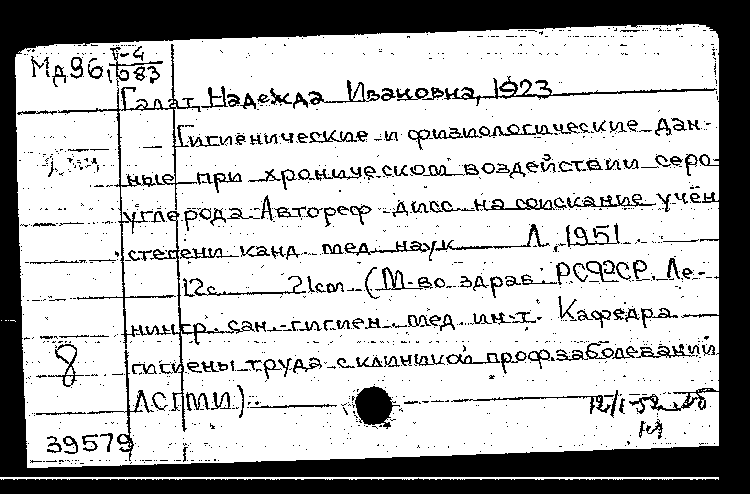 Мд96 Г-4
1083
Галат, Надежда Ивановна, 1923
Гигиенические и физиологические дан-
ные при хроническом воздействии серо-
углерода. Автореф. дисс. на соискание учён
степени канд. мед. наук Л., 1951
12с. 21см (М-во здрав. РСФСР. Ле-
нингр. сан.-гигиен. мед. ин-т. Кафедра
гигиены труда с клиникой профзаболеваний
8
ЛСГМИ).
12/I-52
39579